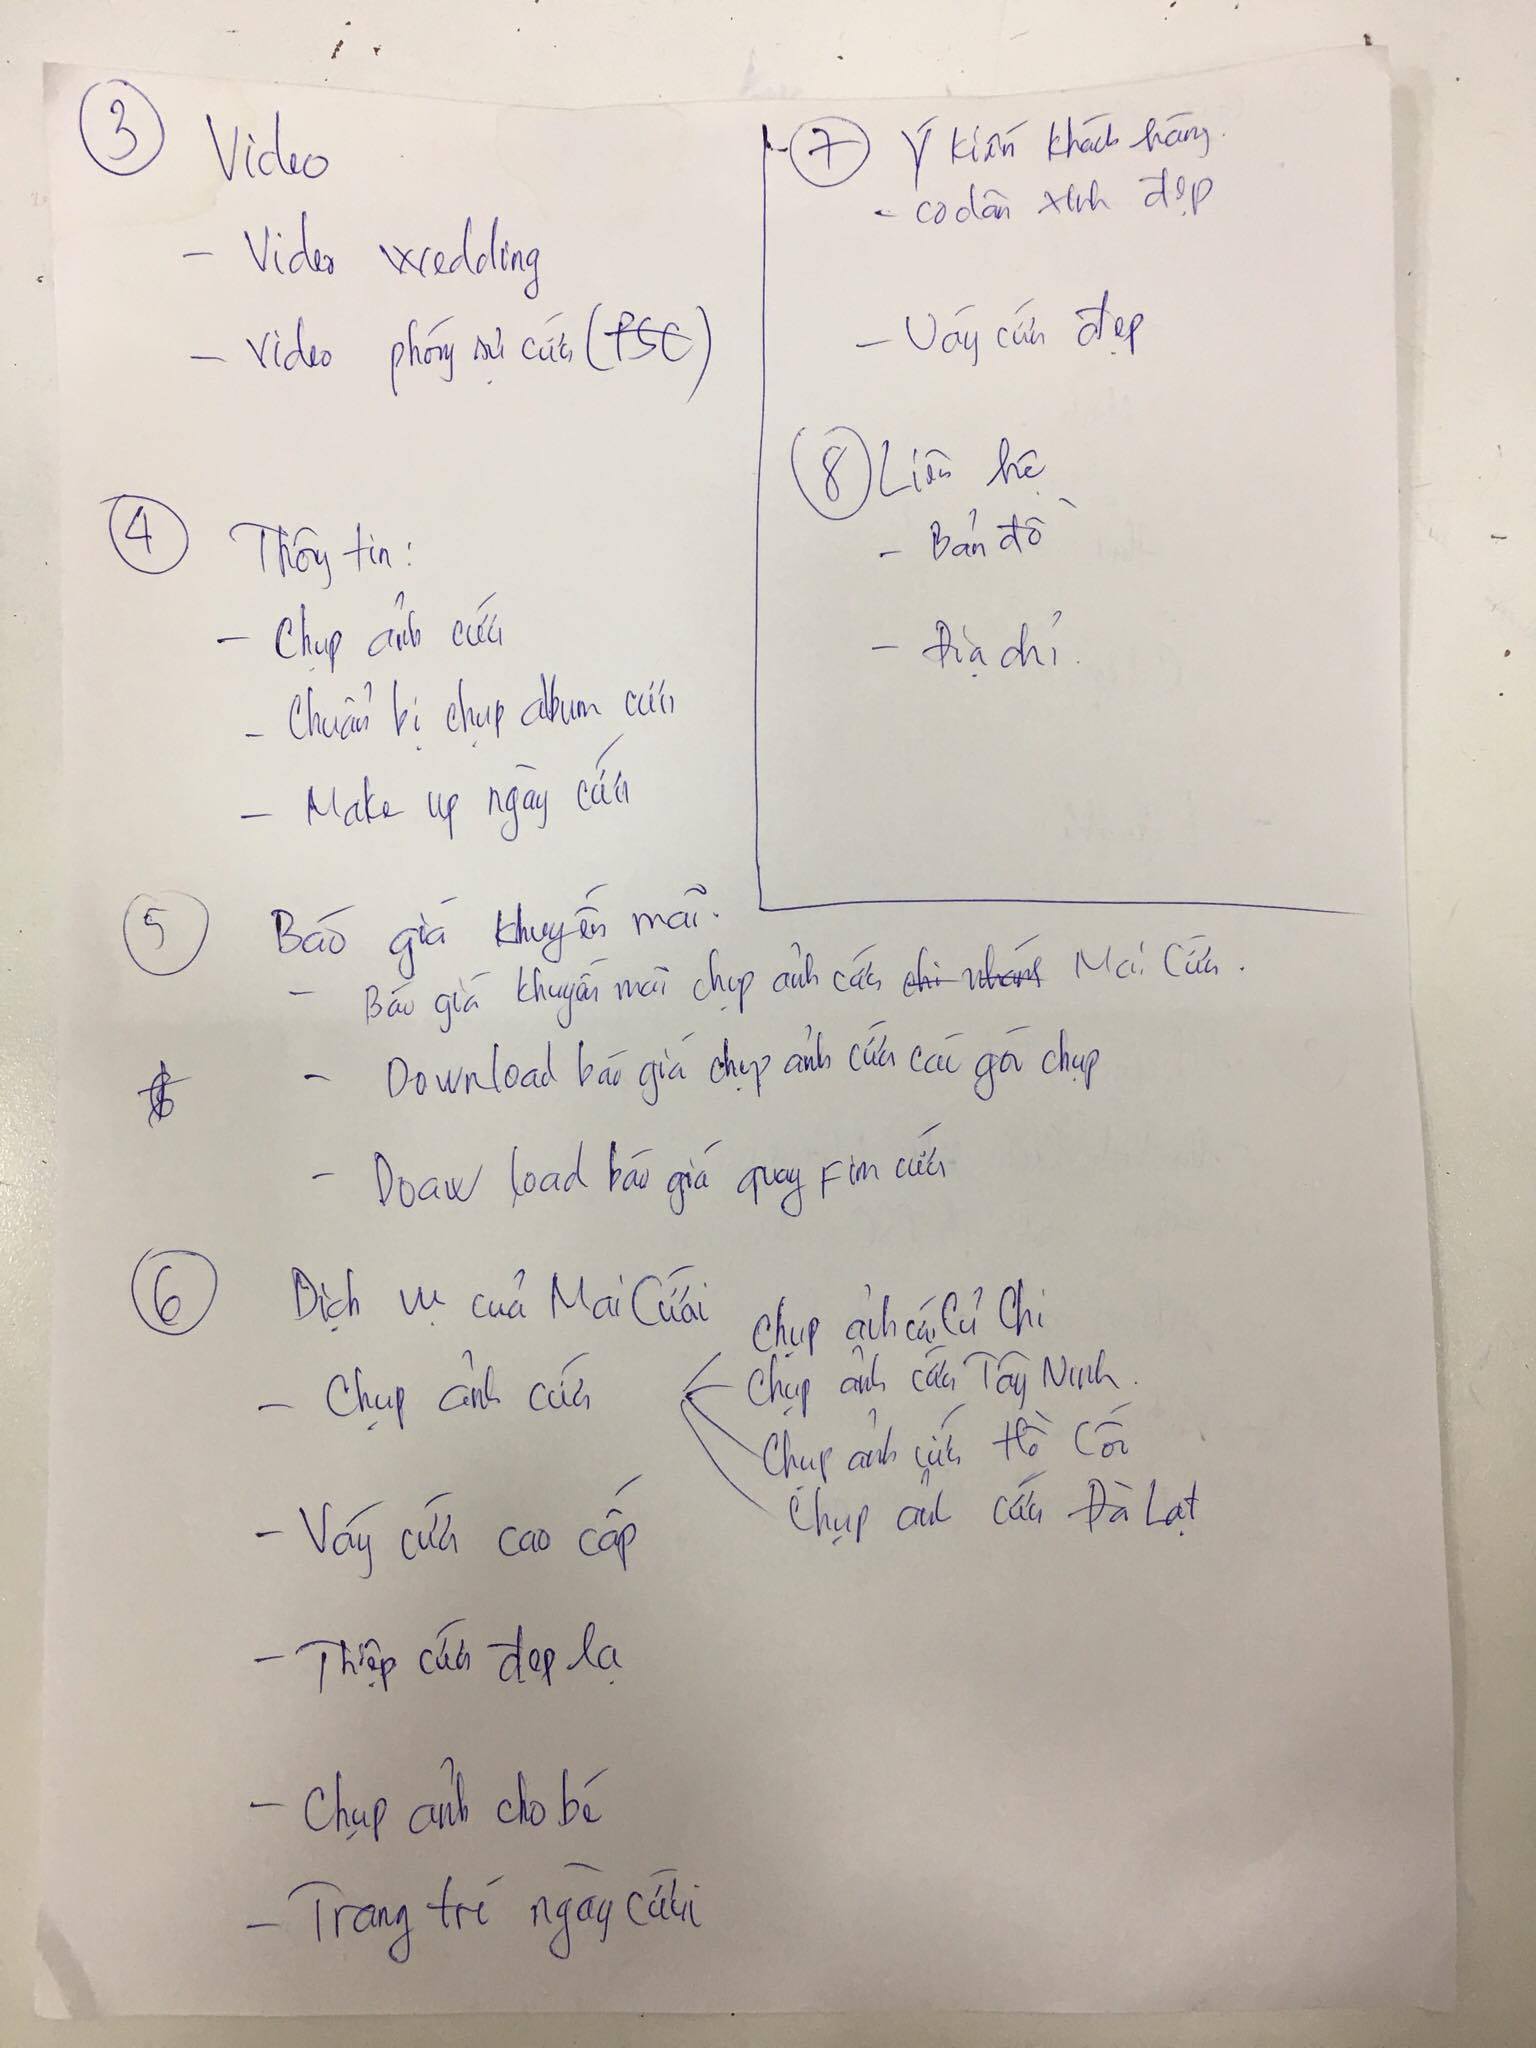 ③ Video
- Video wedding
- Video phóng sự cưới (PSC)
④ Thông tin:
- Chụp ảnh cưới
- Chuẩn bị chụp album cưới
- Make up ngày cưới
⑤ Báo giá khuyến mãi.
- Báo giá khuyến mãi chụp ảnh cưới chi nhánh Mai Cưới.
- Download báo giá chụp ảnh cưới các gói chụp
- Doaw load báo giá quay Fim cưới
⑥ Dịch vụ của Mai Cưới
- Chụp ảnh cưới
Chụp ảnh cưới Củ Chi
Chụp ảnh cưới Tây Ninh.
Chụp ảnh cưới Hồ Cốc
Chụp ảnh cưới Đà Lạt
- Váy cưới cao cấp
- Thiệp cưới đẹp lạ
- Chụp ảnh cho bé
- Trang trí ngày cưới
⑦ Ý kiến khách hàng.
- cô dâu xinh đẹp
- Váy cưới đẹp
⑧ Liên hệ
- Bản đồ
- Địa chỉ.